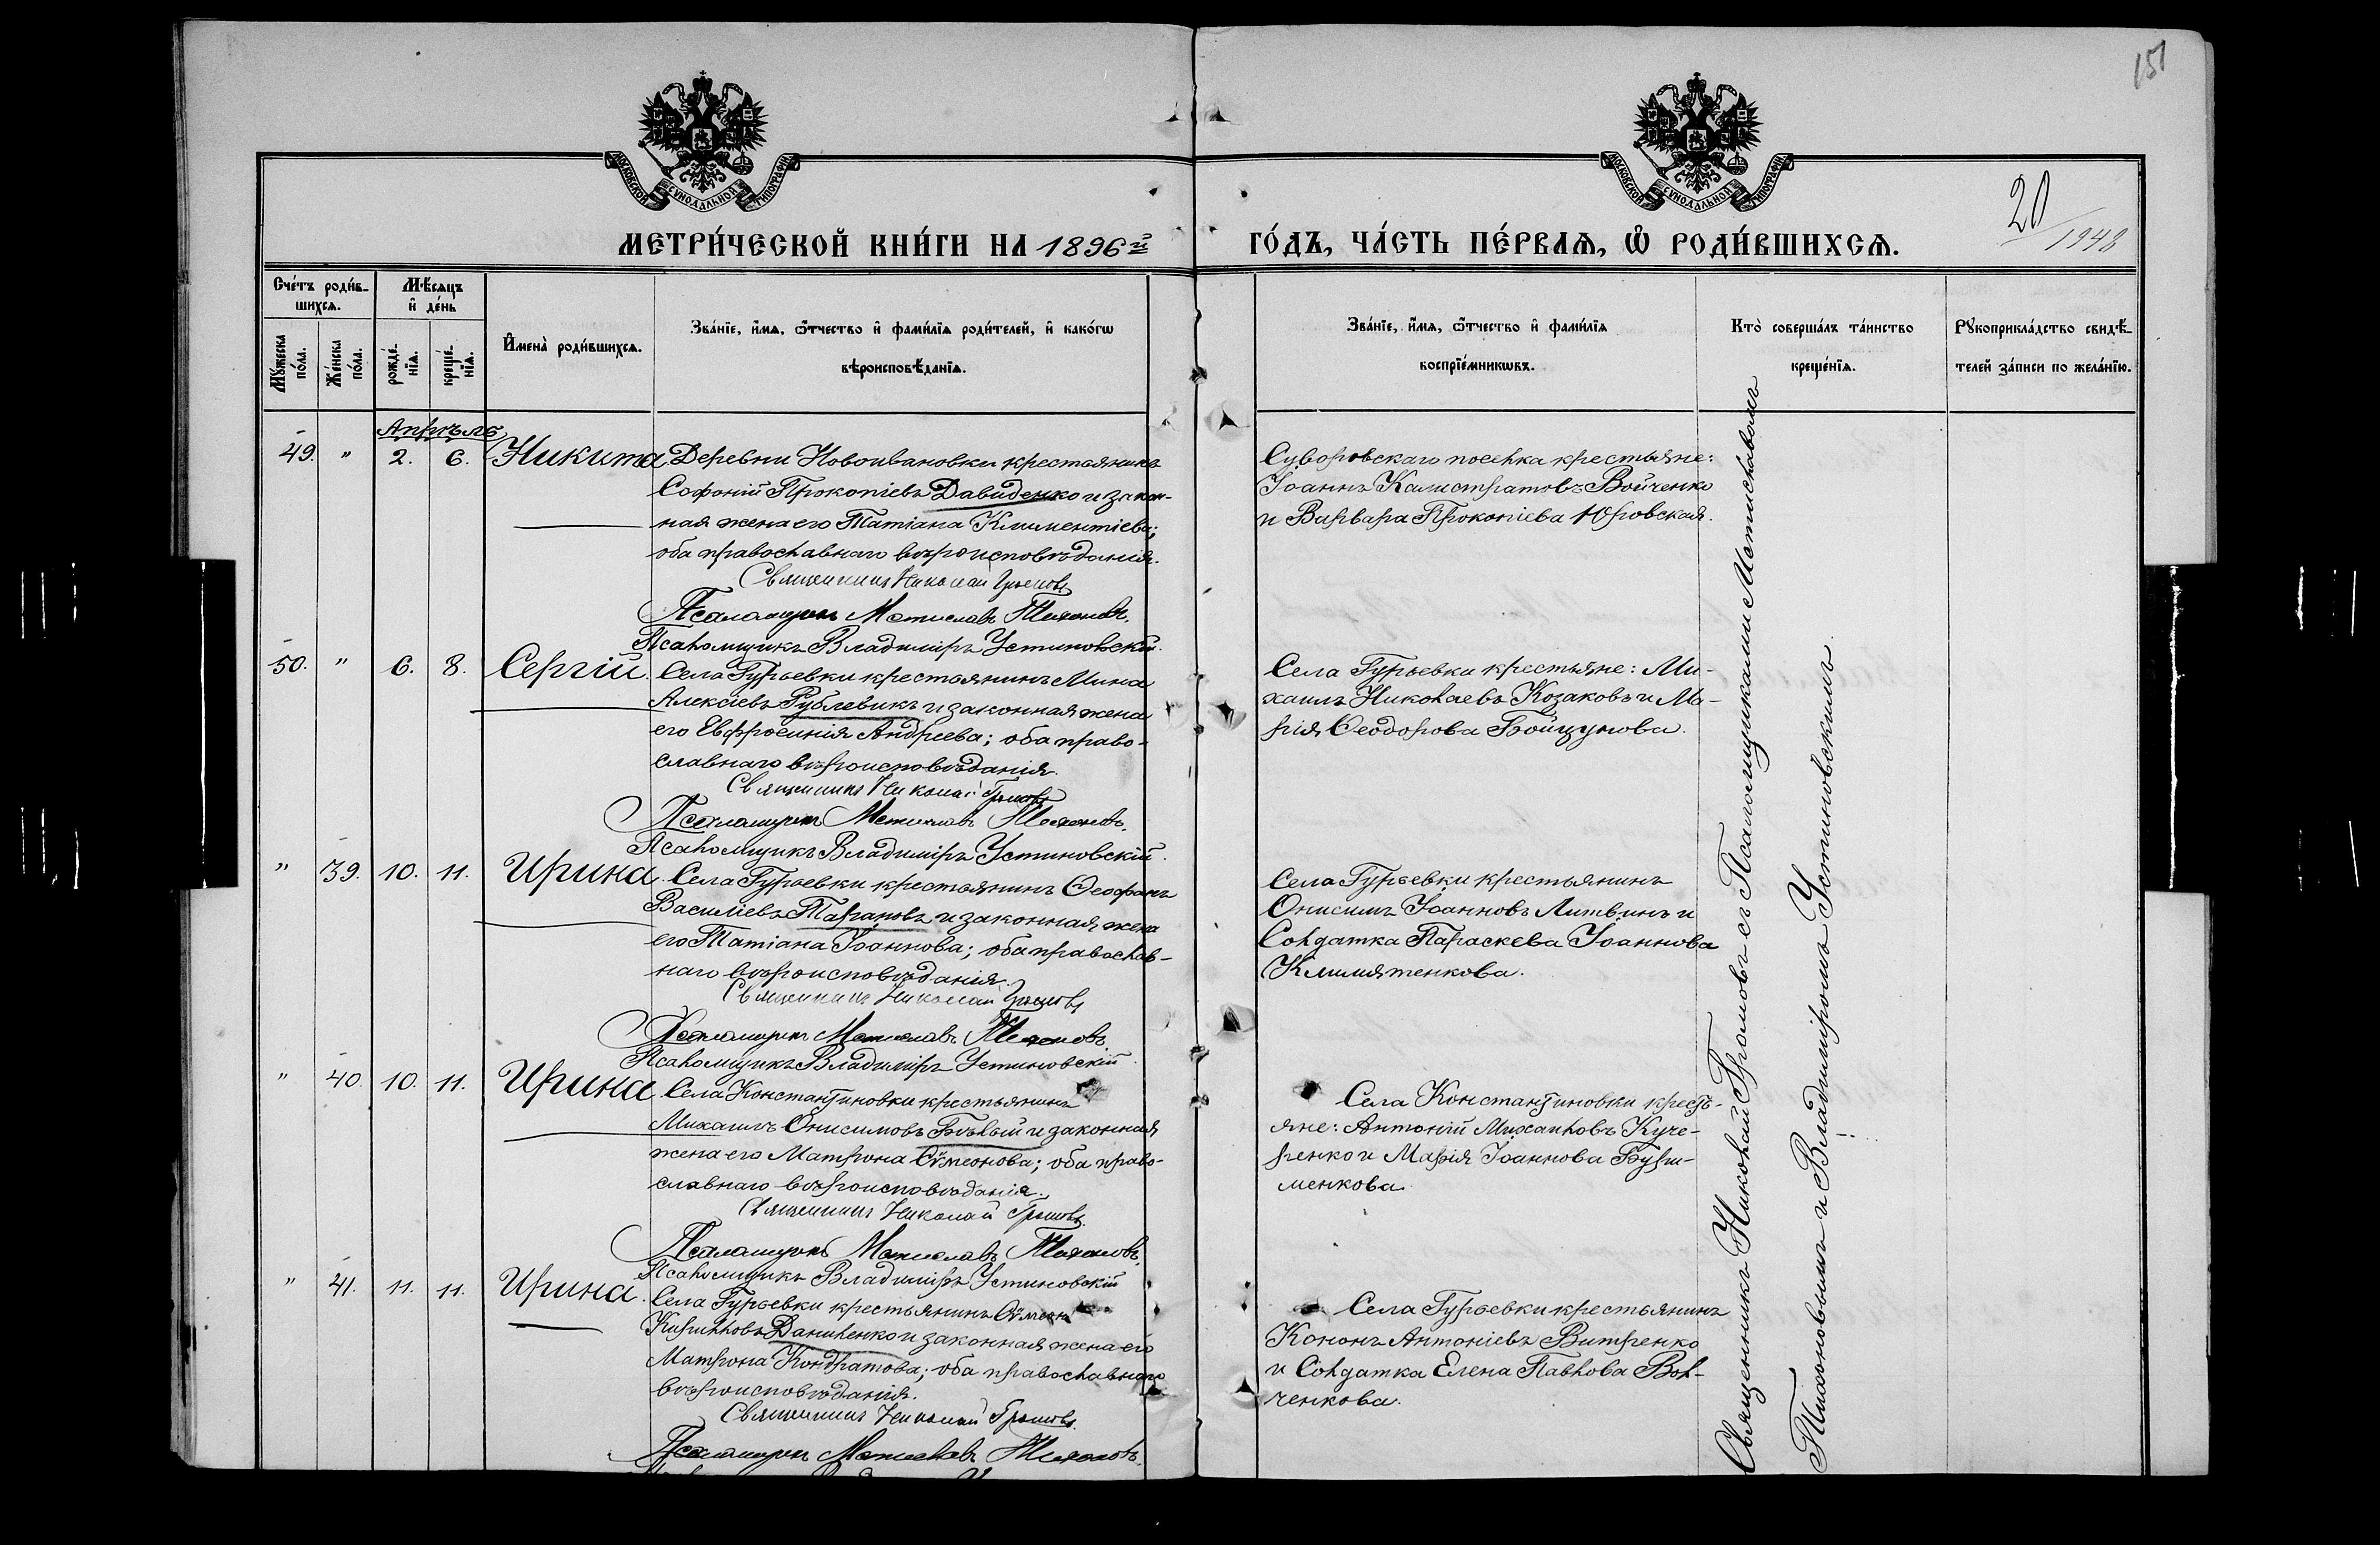 151
МОСКОВСКОЙ СУНОДАЛЬНОЙ ТИПОГРАФІИ
МОСКОВСКОЙ СУНОДАЛЬНОЙ ТИПОГРАФІИ
20
1948
МЕТРИ́ЧЕСКОЙ КНИ́ГИ НА 1896й
ГО́ДЪ, ЧА́СТЬ ПЕ́РВАѦ, Ѡ҆ РОДИ́ВШИХСѦ.
Сче́тъ роди́в-
шихсѧ.
Мѣ́сѧцъ
и҆ де́нь
Мꙋ́жеска
по́ла.
Же́нска
по́ла.
рожде́-
нїѧ.
креще́-
нїѧ.
И҆мена̀ роди́вшихсѧ.
Зва́нїе, и҆́мѧ, ѻ҆́тчество и҆ фами́лїѧ роди́телей, и҆ како́гѡ
вѣроисповѣ́данїѧ.
Зва́нїе, и҆́мѧ, ѻ҆́тчество и҆ фами́лїѧ
воспрїе́мникѡвъ.
Кто̀ соверша́лъ та́инство
креще́нїѧ.
Рꙋкоприкла́дство свидѣ́-
телей за́писи по жела́нїю.
Апрѣль
49. " 2. 6. Никита
Деревни Новоивановки крестьянинъ
Софоній Прокопіевъ Давиденко и закон-
ная жена его Татіана Климентіева;
оба православнаго вѣроисповѣданія.
Священникъ Николай Громовъ
Псаломщикъ Мстиславъ Тихоновъ.
Псаломщикъ Владиміръ Устиновскій.
Суворовскаго посёлка крестьяне:
Іоаннъ Калистратовъ Войченко
и Варвара Прокопіева Юровская.
50. " 6. 8. Сергій.
Села Гурьевки крестьянинъ Мина
Алексіевъ Рублевикъ и законная жена
его Евфросинія Андреева; оба право-
славнаго вѣроисповѣданія.
Священникъ Николай Громовъ
Псаломщикъ Мстиславъ Тихоновъ.
Псаломщикъ Владиміръ Устиновскій.
Села Гурьевки крестьяне: Ми-
хаилъ Николаевъ Козаковъ и Ма-
рія Ѳеодорова Бойцунова.
" 39. 10. 11. Ирина.
Села Гурьевки крестьянинъ Ѳеофанъ
Василіевъ Тарановъ и законная жена
его Татіана Іоаннова; оба православ-
наго вѣроисповѣданія.
Священникъ Николай Громовъ
Псаломщикъ Мстиславъ Тихоновъ.
Псаломщикъ Владиміръ Устиновскій.
Села Гурьевки крестьянинъ
Онисимъ Іоанновъ Литвинъ и
Солдатка Параскева Іоаннова
Климятенкова.
" 40. 10. 11. Ирина.
Села Константиновки крестьянинъ
Михаилъ Онисимовъ Бѣлый и законная
жена его Матрона Сѵмеонова; оба право-
славнаго вѣроисповѣданія.
Священникъ Николай Громовъ.
Псаломщикъ Мстиславъ Тихоновъ.
Псаломщикъ Владиміръ Устиновскій
Села Константиновки кресть-
яне: Антоній Михаиловъ Куче-
ренко и Марія Іоаннова Бури-
менкова.
" 41. 11. 11. Ирина.
Села Гурьевки крестьянинъ Сѵмеонъ
Кирилловъ Даниленко и законная жена его
Матрона Кондратова; оба православнаго
вѣроисповѣданія.
Священникъ Николай Громовъ.
Псаломщикъ Мстиславъ Тихоновъ.
Села Гурьевки крестьянинъ
Кононъ Антоніевъ Витренко
и Солдатка Елена Павлова Вол-
ченкова.
Священникъ Николай Громовъ съ Псаломщиками Мстиславомъ
Тихоновымъ и Владиміромъ Устиновскимъ.